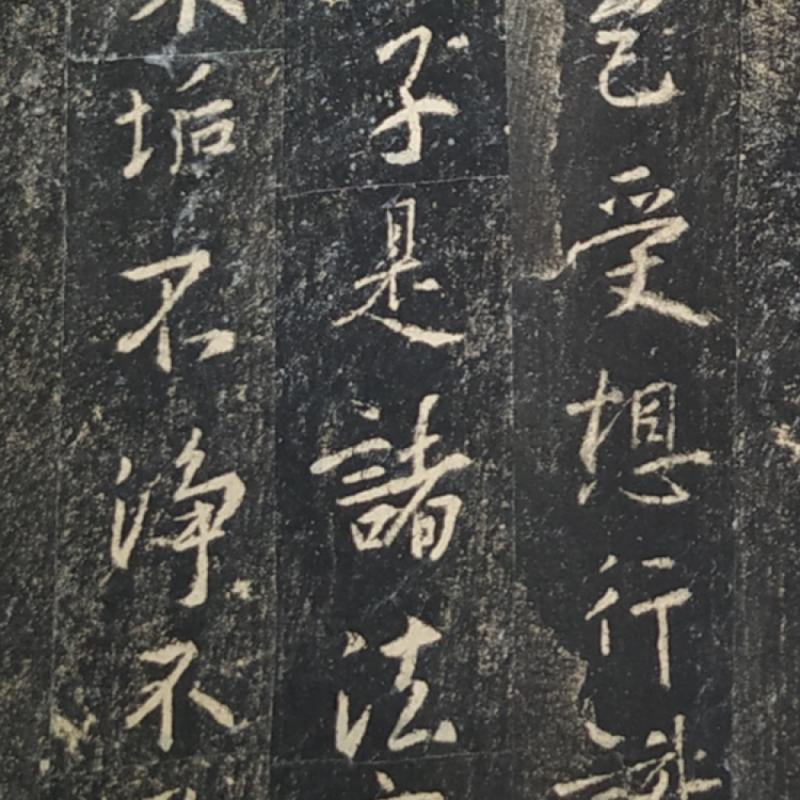 色受想行識
子是諸法
不垢不淨不